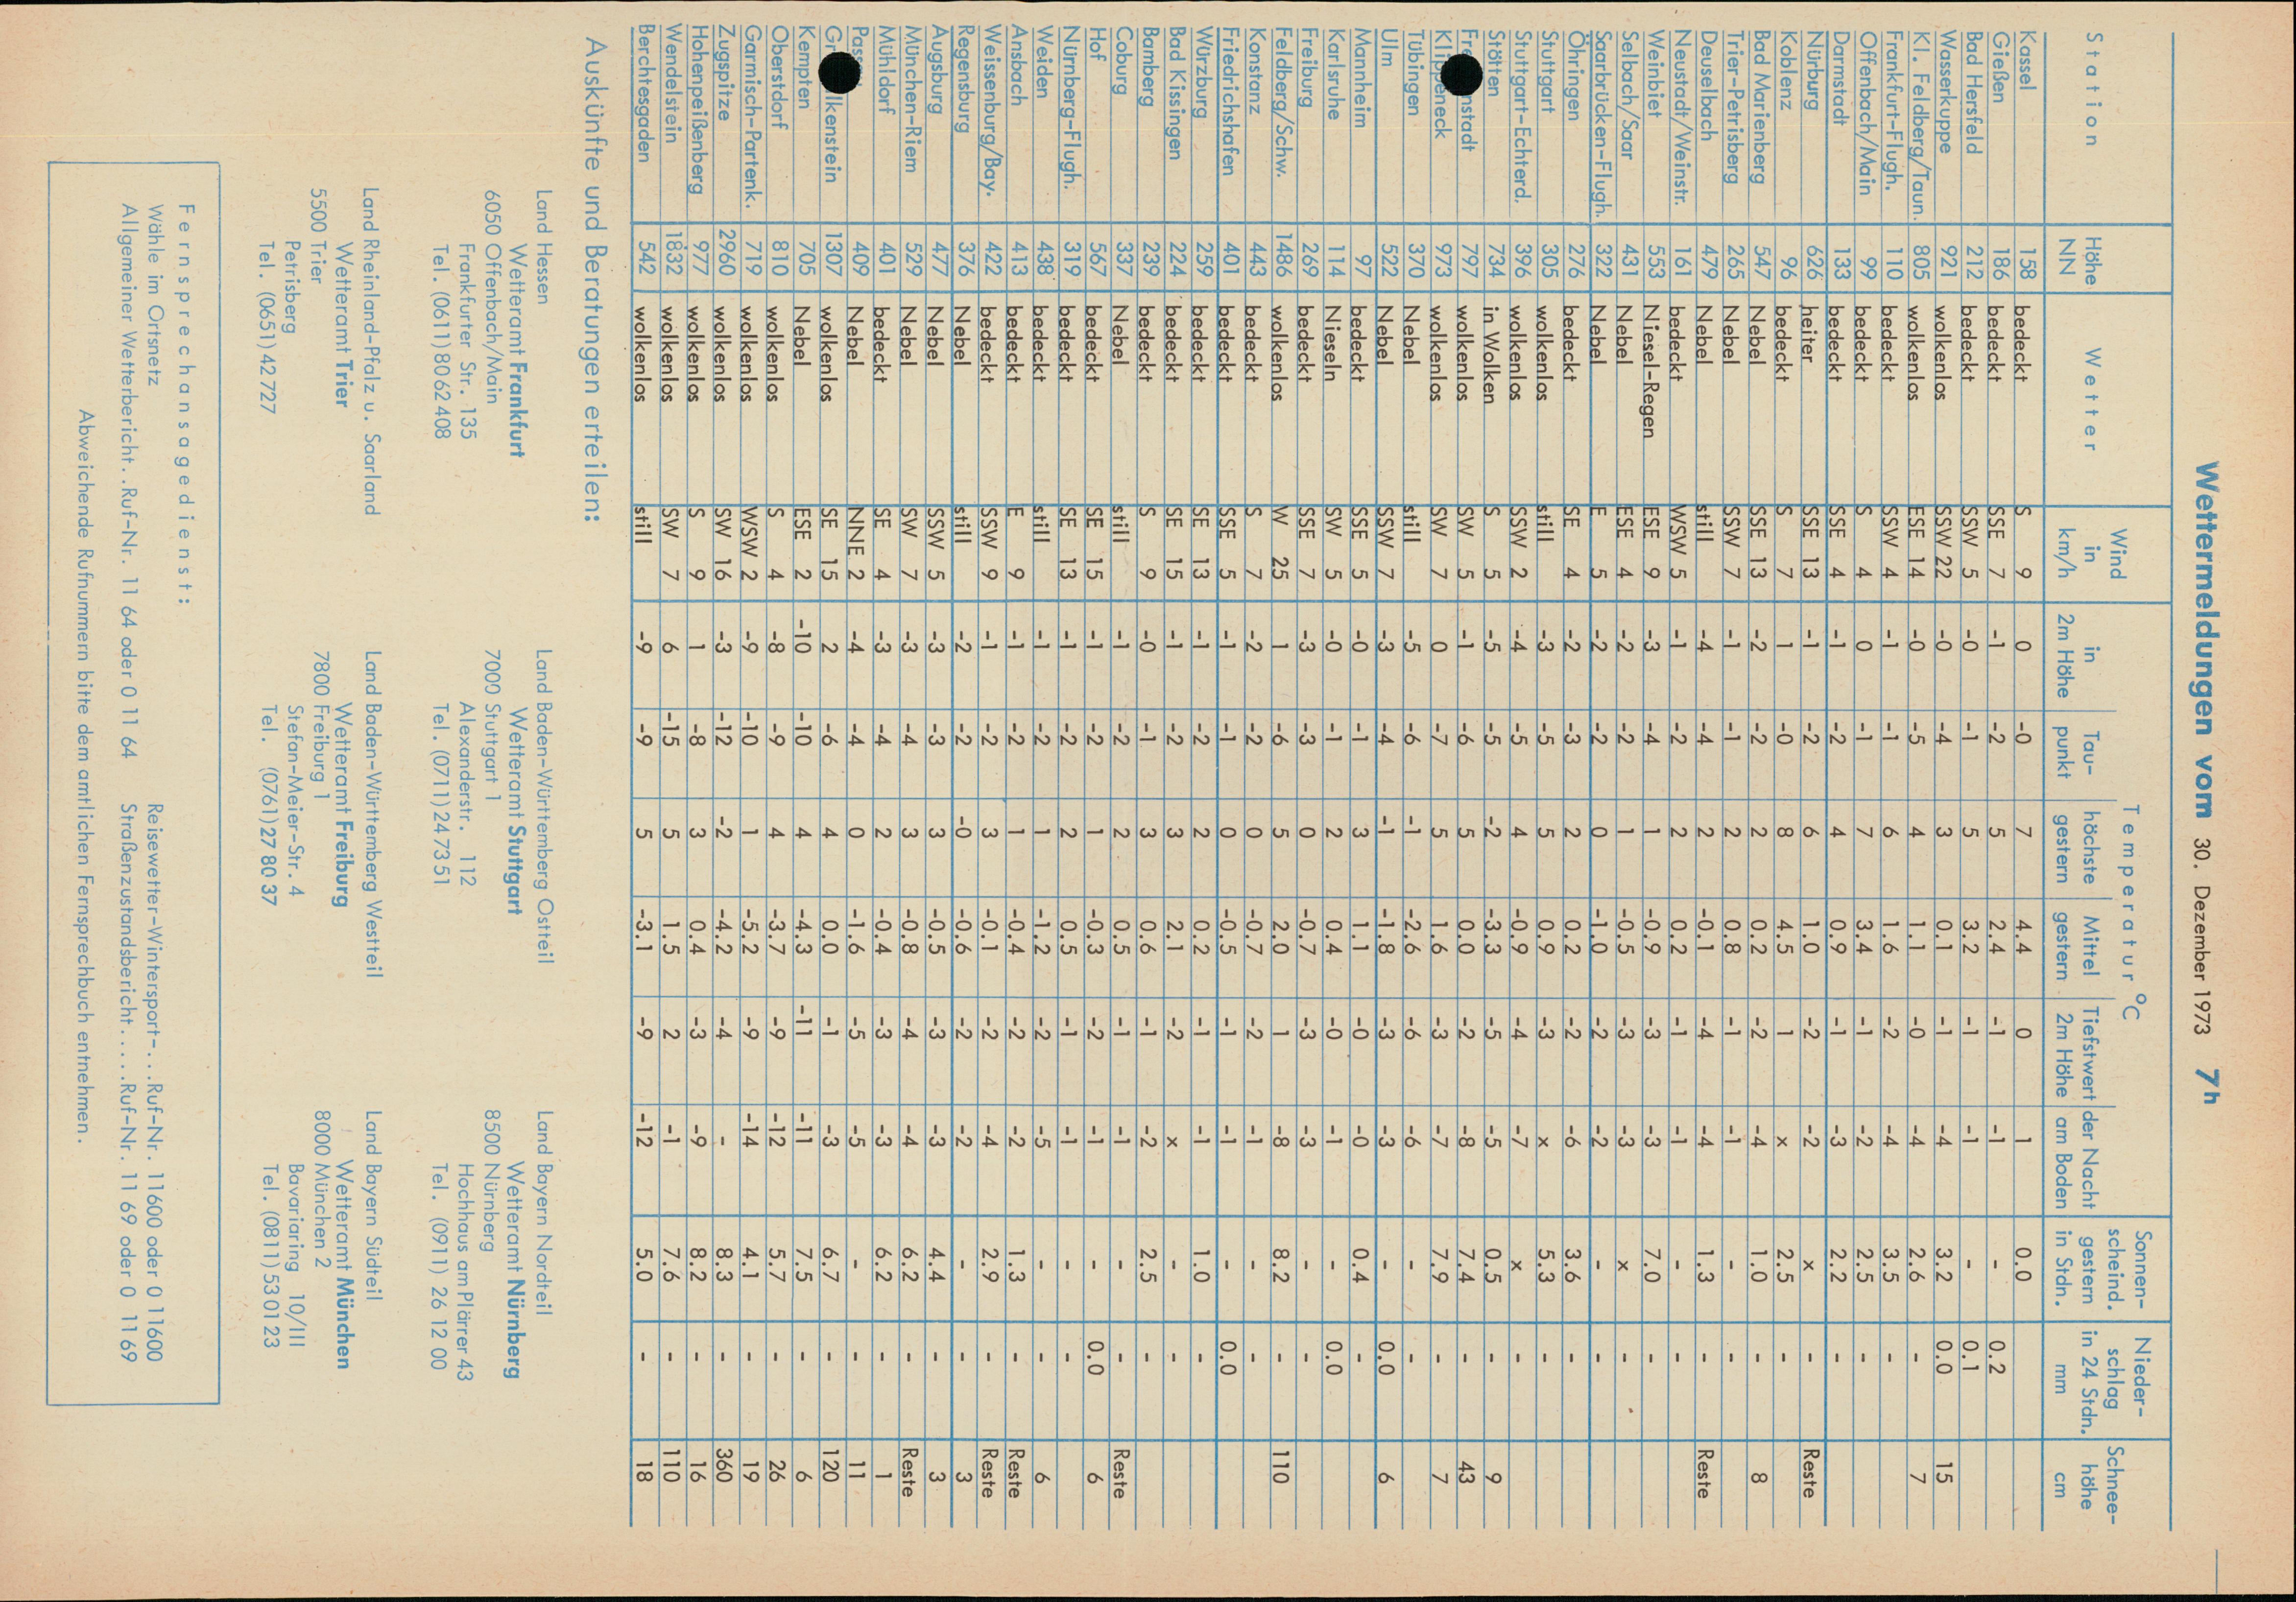 Wettermeldungen vom 30. Dezember 1973 7h
Station Höhe NN Wetter Wind in km/h Temperatur °C in 2m Höhe Tau-punkt höchste gestern Mittel gestern Tiefstwert der Nacht 2m Höhe am Boden Sonnen-scheind. gestern in Stdn. Nieder-schlag in 24 Stdn. mm Schnee-höhe cm
Kassel 158 bedeckt S 9 0 -0 7 4.4 0 1 0.0
Gießen 186 bedeckt SSE 7 -1 -2 5 2.4 -1 -1 - 0.2
Bad Hersfeld 212 bedeckt SSW 5 -0 -1 5 3.2 -1 -1 - 0.1
Wasserkuppe 921 wolkenlos SSW 22 -0 -4 3 0.1 -1 -4 3.2 0.0 15
Kl. Feldberg/Taun. 805 wolkenlos ESE 14 -0 -5 4 1.1 -0 -4 2.6 - 7
Frankfurt-Flugh. 110 bedeckt SSW 4 -1 -1 6 1.6 -2 -4 3.5 -
Offenbach/Main 99 bedeckt S 4 0 -1 7 3.4 -1 -2 2.5 -
Darmstadt 133 bedeckt SSE 4 -1 -2 4 0.9 -1 -3 2.2 -
Nürburg 626 heiter SSE 13 -1 -2 6 1.0 -2 -2 x - Reste
Koblenz 96 bedeckt S 7 1 -0 8 4.5 1 x 2.5 -
Bad Marienberg 547 Nebel SSE 13 -2 -2 2 0.2 -2 -4 1.0 - 8
Trier-Petrisberg 265 Nebel SSW 7 -1 -1 2 0.8 -1 -1 - -
Deuselbach 479 Nebel still -4 -4 2 -0.1 -4 -4 1.3 - Reste
Neustadt/Weinstr. 161 bedeckt WSW 5 -1 -2 2 0.2 -1 -1 - -
Weinbiet 553 Niesel-Regen ESE 9 -3 -4 1 -0.9 -3 -3 7.0 -
Selbach/Saar 431 Nebel ESE 4 -2 -2 1 -0.5 -3 -3 x -
Saarbrücken-Flugh. 322 Nebel E 5 -2 -2 0 -1.0 -2 -2 - -
Öhringen 276 bedeckt SE 4 -2 -3 2 0.2 -2 -6 3.6 -
Stuttgart 305 wolkenlos still -3 -5 5 0.9 -3 x 5.3 -
Stuttgart-Echterd. 396 wolkenlos SSW 2 -4 -5 4 -0.9 -4 -7 x -
Stötten 734 in Wolken S 5 -5 -5 -2 -3.3 -5 -5 0.5 - 9
nstadt 797 wolkenlos SW 5 -1 -6 5 0.0 -2 -8 7.4 - 43
Klippeneck 973 wolkenlos SW 7 0 -7 5 1.6 -3 -7 7.9 - 7
Tübingen 370 Nebel still -5 -6 -1 -2.6 -6 -6 - -
Ulm 522 Nebel SSW 7 -3 -4 -1 -1.8 -3 -3 - 0.0 6
Mannheim 97 bedeckt SSE 5 -0 -1 3 1.1 -0 -0 0.4 -
Karlsruhe 114 Nieseln SW 5 -0 -1 2 0.4 -0 -1 - 0.0
Freiburg 269 bedeckt SSE 7 -3 -3 0 -0.7 -3 -3 - -
Feldberg/Schw. 1486 wolkenlos W 25 1 -6 5 2.0 1 -8 8.2 - 110
Konstanz 443 bedeckt S 7 -2 -2 0 -0.7 -2 -1 - -
Friedrichshafen 401 bedeckt SSE 5 -1 -1 0 -0.5 -1 -1 - 0.0
Würzburg 259 bedeckt SE 13 -1 -2 2 0.2 -1 -1 1.0 -
Bad Kissingen 224 bedeckt SE 15 -1 -2 3 2.1 -2 x - -
Bamberg 239 bedeckt S 9 -0 -1 3 0.6 -1 -2 2.5 -
Coburg 337 Nebel still -1 -2 2 0.5 -1 -1 - - Reste
Hof 567 bedeckt SE 15 -1 -2 1 -0.3 -2 -1 - 0.0 6
Nürnberg-Flugh. 319 bedeckt SE 13 -1 -2 2 0.5 -1 -1 - -
Weiden 438 bedeckt still -1 -2 1 -1.2 -2 -5 - - 6
Ansbach 413 bedeckt E 9 -1 -2 1 -0.4 -2 -2 1.3 - Reste
Weissenburg/Bay. 422 bedeckt SSW 9 -1 -2 3 -0.1 -2 -4 2.9 - Reste
Regensburg 376 Nebel still -2 -2 -0 -0.6 -2 -2 - - 3
Augsburg 477 Nebel SSW 5 -3 -3 3 -0.5 -3 -3 4.4 - 3
München-Riem 529 Nebel SW 7 -3 -4 3 -0.8 -4 -4 6.2 - Reste
Mühldorf 401 bedeckt SE 4 -3 -4 2 -0.4 -3 -3 6.2 - 1
Passau 409 Nebel NNE 2 -4 -4 0 -1.6 -5 -5 - - 11
Gr lkenstein 1307 wolkenlos SE 15 2 -6 4 0.0 -1 -3 6.7 - 120
Kempten 705 Nebel ESE 2 -10 -10 4 -4.3 -11 -11 7.5 - 6
Oberstdorf 810 wolkenlos S 4 -8 -9 4 -3.7 -9 -12 5.7 - 26
Garmisch-Partenk. 719 wolkenlos WSW 2 -9 -10 1 -5.2 -9 -14 4.1 - 19
Zugspitze 2960 wolkenlos SW 16 -3 -12 -2 -4.2 -4 - 8.3 - 360
Hohenpeißenberg 977 wolkenlos S 9 1 -8 3 0.4 -3 -9 8.2 - 16
Wendelstein 1832 wolkenlos SW 7 6 -15 5 1.5 2 -1 7.6 - 110
Berchtesgaden 542 wolkenlos still -9 -9 5 -3.1 -9 -12 5.0 - 18
Auskünfte und Beratungen erteilen:
Land Hessen
Wetteramt Frankfurt
6050 Offenbach/Main
Frankfurter Str. 135
Tel. (0611) 80 62 408
Land Baden-Württemberg Ostteil
Wetteramt Stuttgart
7000 Stuttgart 1
Alexanderstr. 112
Tel. (0711) 24 73 51
Land Bayern Nordteil
Wetteramt Nürnberg
8500 Nürnberg
Hochhaus am Plärrer 43
Tel. (0911) 26 12 00
Land Rheinland-Pfalz u. Saarland
Wetteramt Trier
5500 Trier
Petrisberg
Tel. (0651) 42 727
Land Baden-Württemberg Westteil
Wetteramt Freiburg
7800 Freiburg 1
Stefan-Meier-Str. 4
Tel. (0761) 27 80 37
Land Bayern Südteil
Wetteramt München
8000 München 2
Bavariaring 10/III
Tel. (0811) 53 01 23
Fernsprechansagedienst:
Wähle im Ortsnetz Reisewetter-Wintersport-...Ruf-Nr. 11600 oder 0 11600
Allgemeiner Wetterbericht..Ruf-Nr. 11 64 oder 0 11 64 Straßenzustandsbericht.....Ruf-Nr. 11 69 oder 0 11 69
Abweichende Rufnummern bitte dem amtlichen Fernsprechbuch entnehmen.